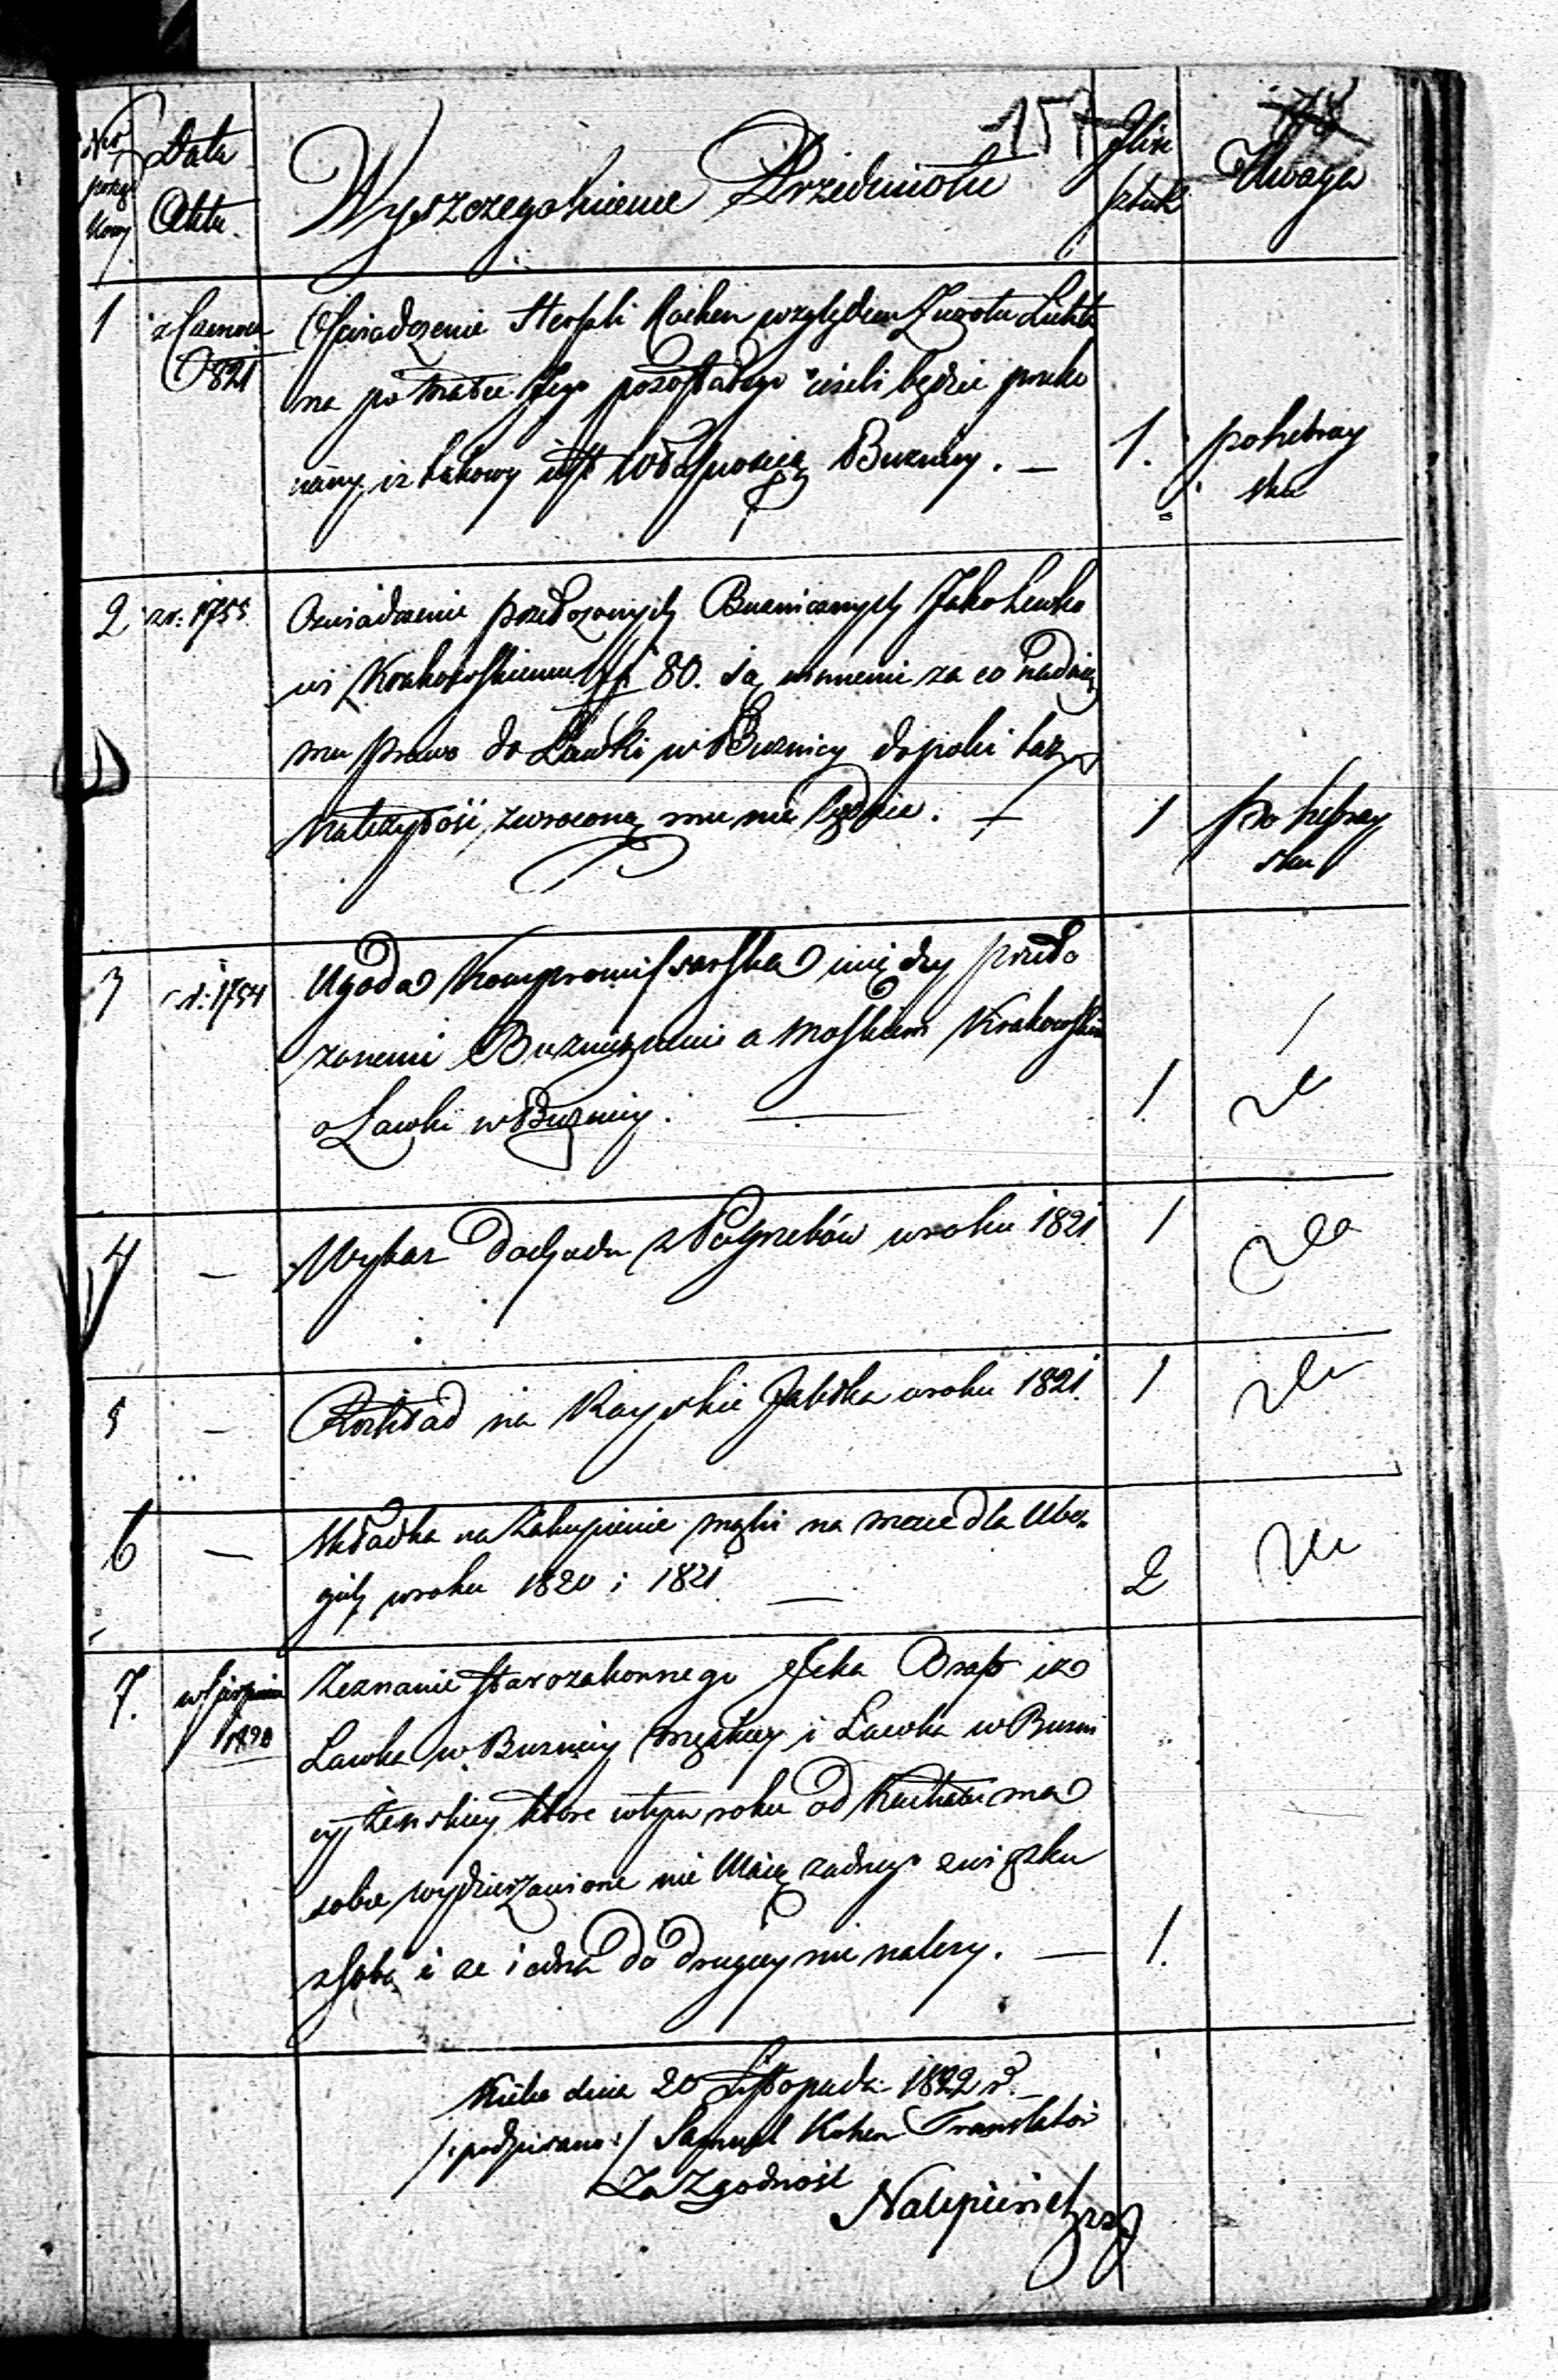 157
Nro porząd kowy
Data Aktu.
Wyszczegolnienie Przedmiotu
Ilość sztuk
Uwaga
1 z Czerwca 1821 Oświadczenie Herszli Kochen względem Zwrotu Lichta
na po matce Jego pozostałego ieżeli będzie przeko
nany iż takowy iest Własnością Buznicy. — 1. po hebray
sku
2 z r: 1755 Oswiadczenie przełozonych Buznicznych Jako Lewko
wi Krakowskiemu 80. są winnemi za co nadaią
mu prawo do Ławki w Buznicy dopoki taz
należytość zwroconą mu nie będzie. — 1 po hebray
sku
3 r: 1754 Ugoda Kompromissarska między przeło
zonemi Buznicznemi a Moskiem Krakowskim
o Ławki w Buznicy. — 1
4 — Wykaz Dochodu z Pogrzebów w roku 1821 1
5 — Rozkład na Rayskie Jabłka w roku 1821. 1
6 — Składka na Zakupienie mąki na mace dla Ubo-
gich w roku 1820 i 1821 — 2
7. w Sierpniu 1820 Zeznanie starozakonnego Icka iz
Ławka w Buznicy męskiey i Ławka w Buzni
cy Zenskiey ktore w tym roku od Kahału ma
sobie wydzierzawione nie Maią zadnego związku
z sobą i ze iedna do drugiey nie nalezy. — 1.
Kielce dnia 20 Listopada 1822 r.
/:podpisano:/ Samuel Kohen Translator
Za Zgodność